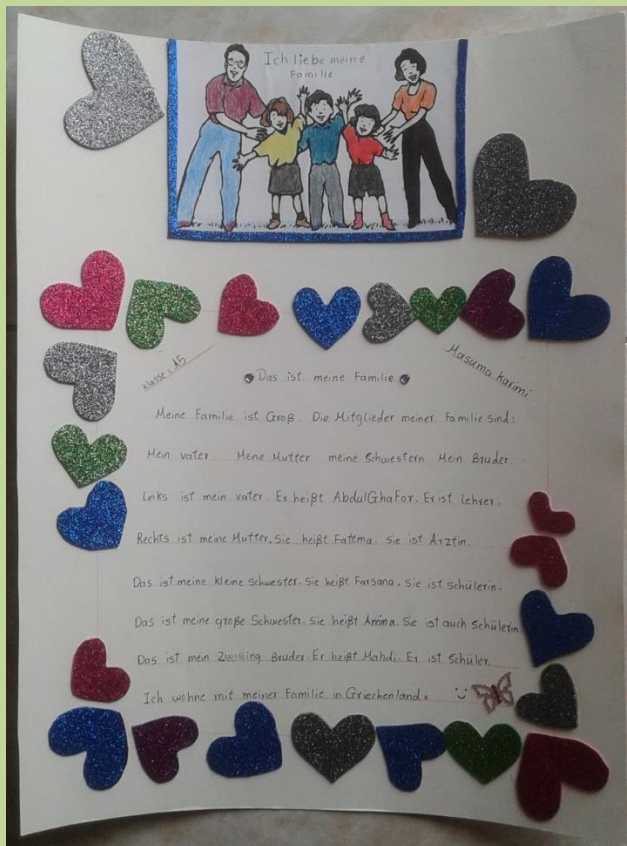 Ich liebe meine
Familie
Klasse: A5
Masuma Karimi
Das ist meine Familie
Meine Familie ist Groß. Die Mitglieder meiner Familie sind:
Mein vater Meine Mutter meine Schwestern Mein Bruder.
Links ist mein vater. Er heißt AbdulGhaFor. Er ist Lehrer.
Rechts ist meine Mutter. Sie heißt Fatema. Sie ist Ärztin.
Das ist meine kleine Schwester. Sie heißt Farsana. Sie ist Schülerin.
Das ist meine große Schwester. Sie heißt Amina. Sie ist auch Schülerin
Das ist mein Zwilling Bruder Er heißt Mahdi. Er ist Schüler.
Ich wohne mit meiner Familie in Griechenland.